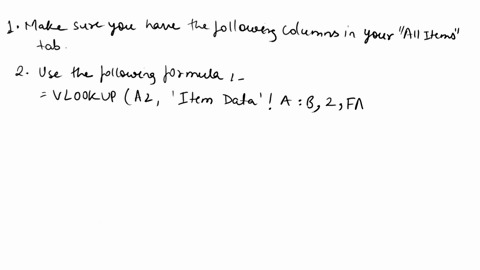 1. Make sure you have the following columns in your "All Items"
tab.
2. Use the following formula :-
= VLOOKUP (A2, 'Item Data'! A:B, 2, FA